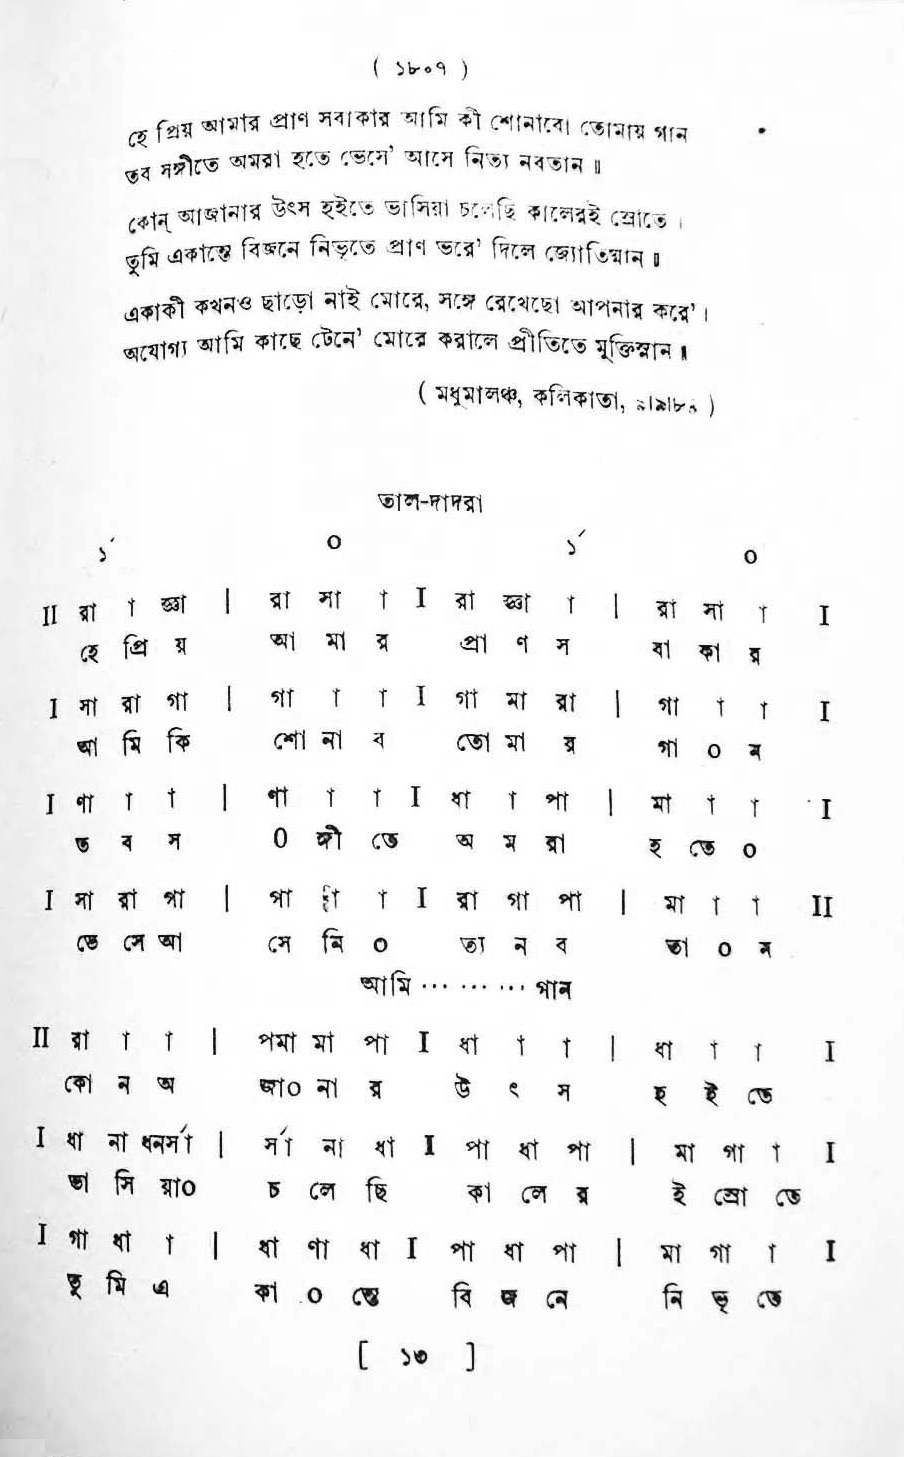 ( ১৮০৭ )
হে প্রিয় আমার প্রাণ সবাকার আমি কী শোনাবো তোমায় গান
তব সঙ্গীতে অমরা হতে ভেসে' আসে নিত্য নবতান ॥
কোন্ অজানার উৎস হইতে ভাসিয়া চলেছি কালেরই স্রোতে ।
তুমি একান্তে বিজনে নিভৃতে প্রাণ ভরে' দিলে জ্যোতিষ্মান ॥
একাকী কখনও ছাড়ো নাই মোরে, সঙ্গে রেখেছো আপনার করে' ।
অযোগ্য আমি কাছে টেনে' মোরে করালে প্রীতিতে মুক্তিস্নান ॥
( মধুমালঞ্চ, কলিকাতা,
তাল-দাদরা
১´ ০ ১´ ০
II রা া জ্ঞা | রা সা া I রা জ্ঞা া | রা সা া I
হে প্রি য় আ মা র প্রা ণ স বা কা র
I সা রা গা | গা া া I গা মা রা | গা া া I
আ মি কি শো না ব তো মা য় গা ০ ন
I ণা া া | ণা া া I ধা া পা | মা া া I
ত ব স ০ ঙ্গী তে অ ম রা হ তে ০
I সা রা গা | গা া I রা গা পা | মা া া II
ভে সে আ সে নি ০ ত্য ন ব তা ০ ন
আমি ... ... ... গান
II রা া া | পমা মা পা I ধা া া | ধা া া I
কো ন অ জা০ না র উ ৎ স হ ই তে
I ধা না ধনর্সা | র্সা না ধা I পা ধা পা | মা গা া I
ভা সি য়া০ চ লে ছি কা লে র ই স্রো তে
I গা ধা া | ধা ণা ধা I পা ধা পা | মা গা া I
তু মি এ কা ০ ন্তে বি জ নে নি ভৃ তে
[ ১৩ ]